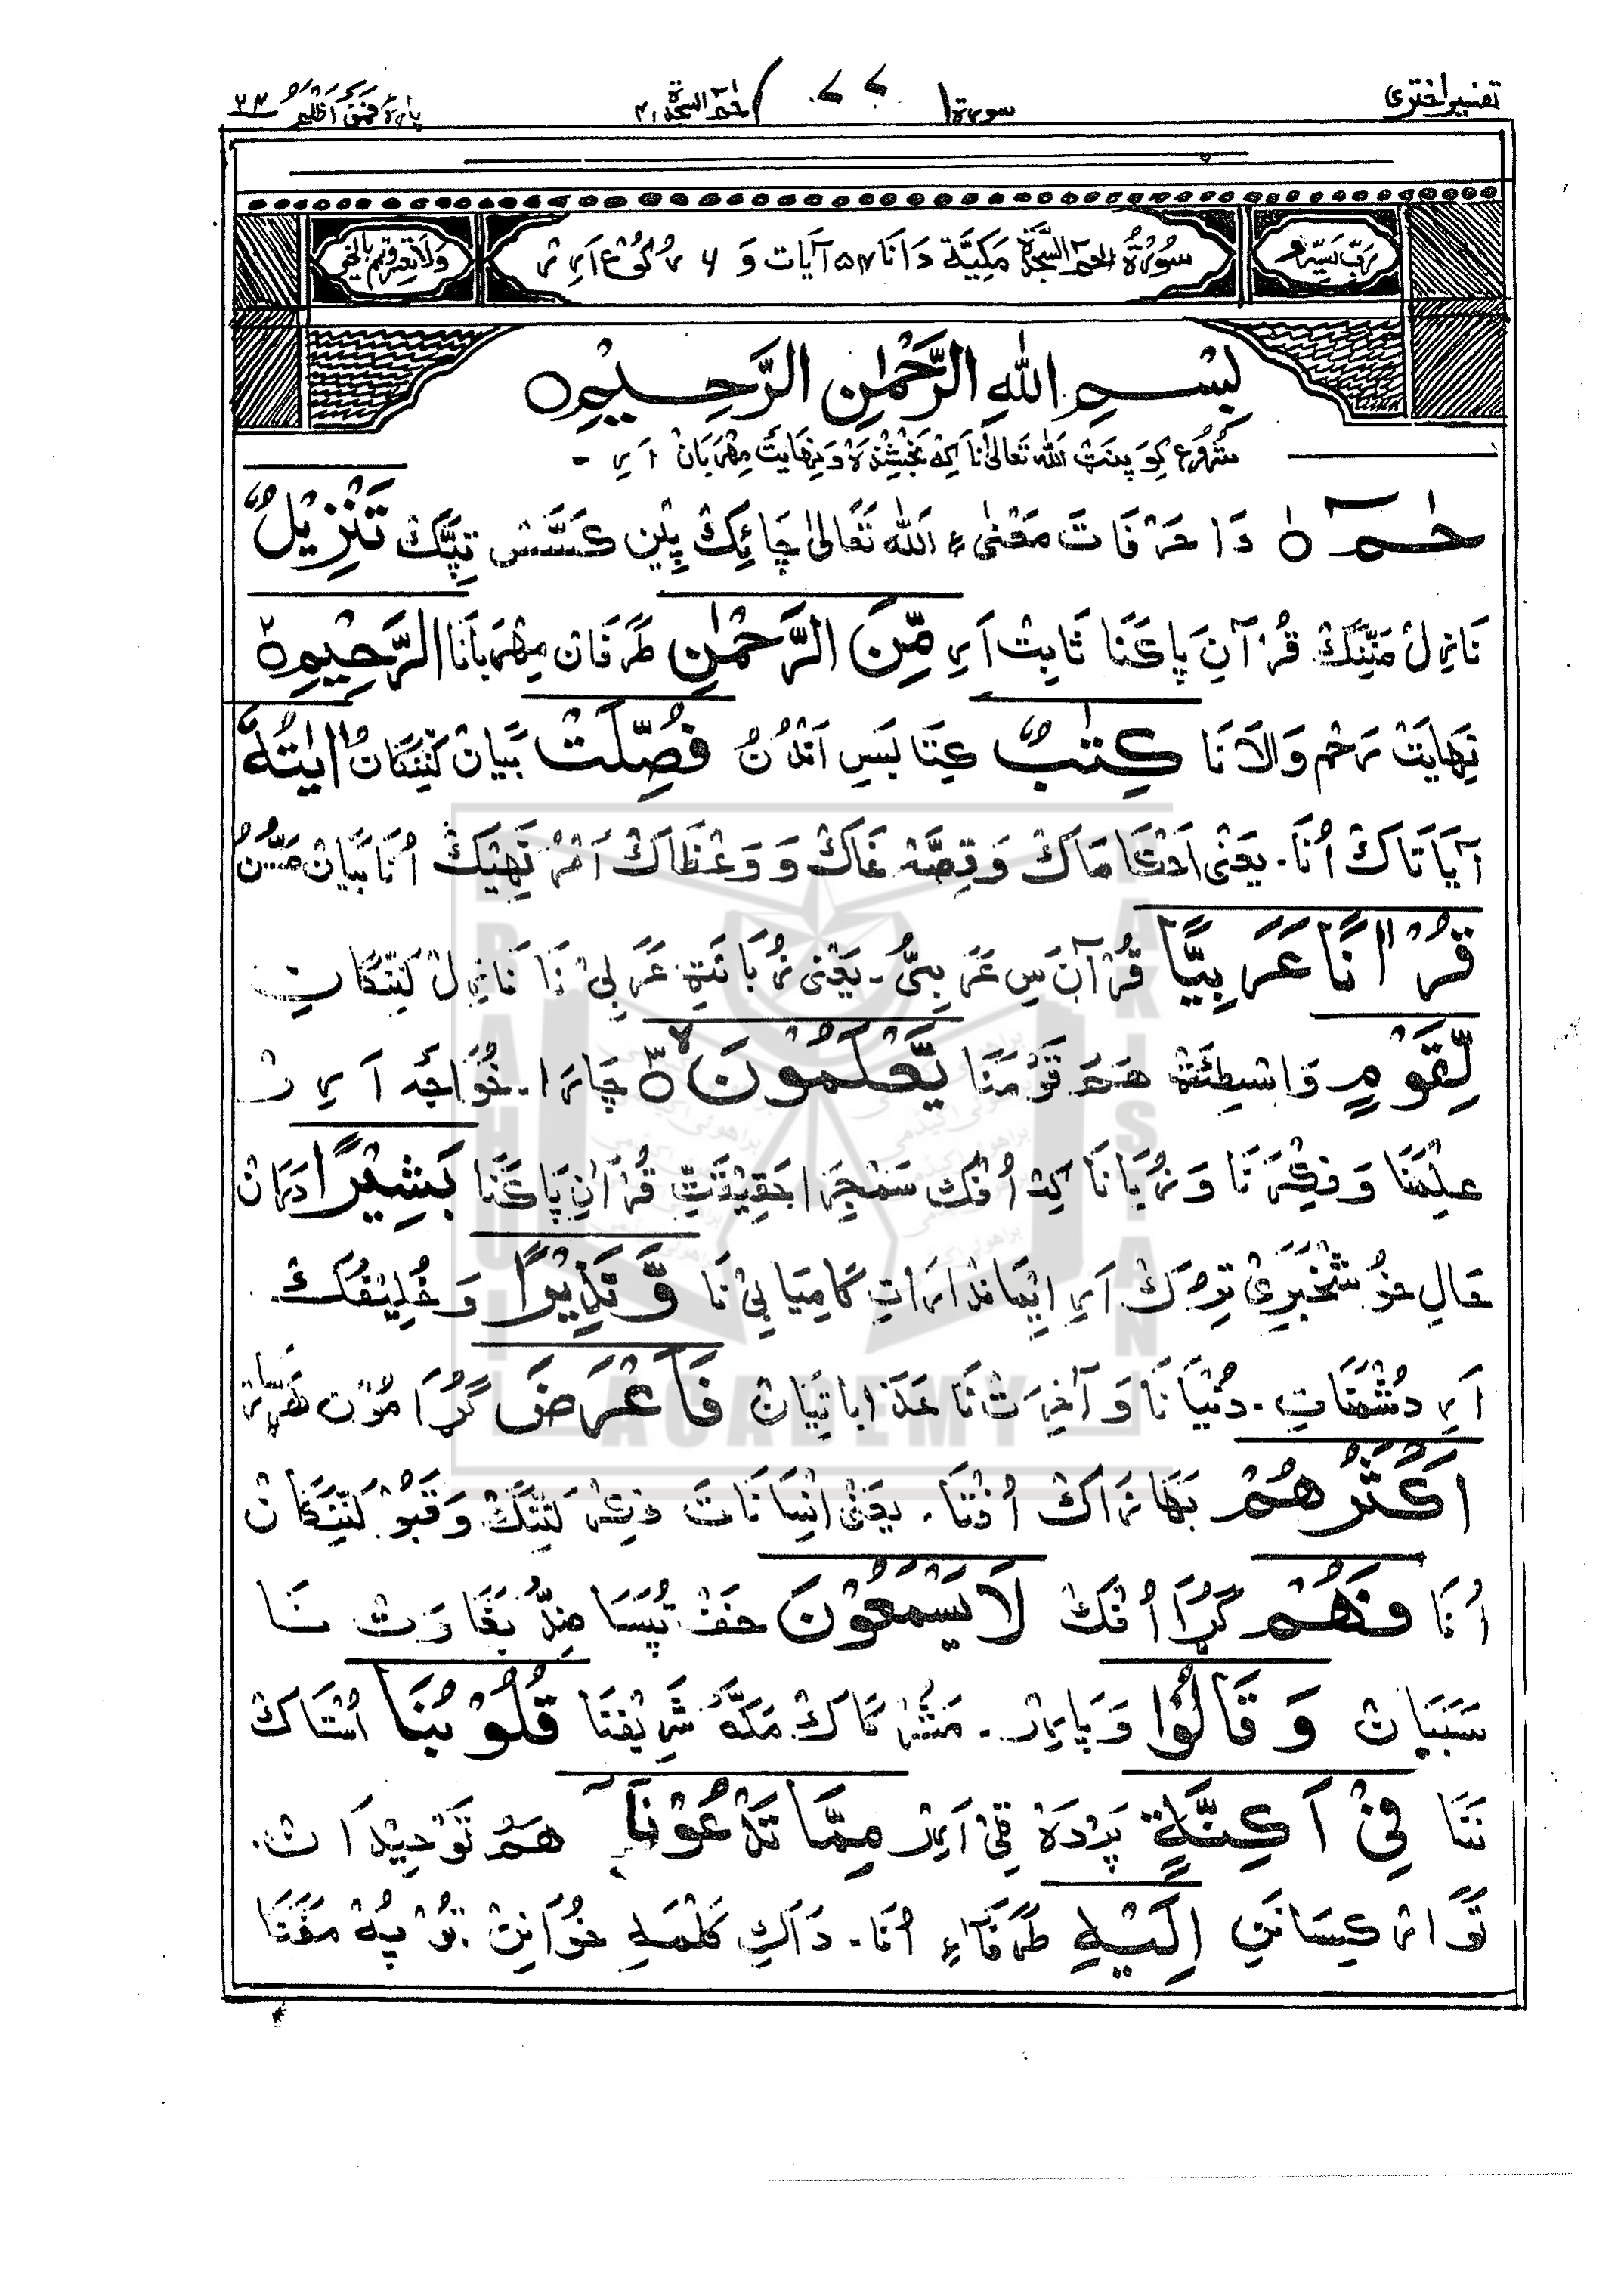 تفسیر اختری سورۃ حٰمٓ السجدۃ ۴۱ پارہ فَمَنْ اَظْلَمُ ۲۴
رَبِّ یَسِّرْ وَلَا تُعَسِّرْ وَتَمِّمْ بِالْخَیْر
سُوْرَۃُ حٰمٓ السَّجْدَۃ مَکِیَّۃ دَانَا ۵۴ آیَات وَ ۶ رُکُوْع اَرِرْ
بِسْمِ اللهِ الرَّحْمٰنِ الرَّحِیْمِ ۝
شُرُوْع کِوَ پِنَتْ اَللہ تَعَالیٰ نَا کِہ بَخْشِنْدَہْ وَ نِہَایَتْ مِہْرَبَانْ اَرِ -
حٰمٓ ۝ دَا حَرْفَاتَ مَعْنٰیءِ اَللہ تَعَالیٰ چَائِکْ پِیْن کَسَّسْ تِپَّکْ تَنْزِیْلٌ
نَازِلْ مَنِّنَگْ قُرْآنِ پَاکَنَا ثَابِتْ اَرِ مِّنَ الرَّحْمٰنِ طَرْفَانْ مِہْرَبَانَا الرَّحِیْمِ ۝
نِہَایَتْ رَحْم وَالَانَا کِتٰبٌ کِتَابَسِ اَنْدُنْ فُصِّلَتْ بَیَانْ کَنِّنْگَانُ اٰیٰتُہٗ
آیَاتَاکْ اُنَا۔ یَعْنٖی اَحْکَامَاکْ وَ قِصَّہ غَاکْ وَ وَعْظَاکْ اَمْرْ نَہِیْکْ اُنَا بَیَانْ مَسُّنُ
قُرْاٰنًا عَرَبِیًّا قُرْآنَسِ عَرَبِیُّ۔ یَعْنِی زُبَانَٹِ عَرَبِیْ نَا نَازِلْ کَنِّنْگَاتِ
لِّقَوْمٍ وَاسْطِئَٹْ ھَمُ قَوْمَنَا یَّعْلَمُوْنَ ۝ چَارَا۔ خُوَاجَہ اَرِرْ
عِلْمَنَا وَ فِکِرَنَا وَ زُبَانَا کِہ اُفْکْ سَمْجِرَا حَقِیْقَتِ قُرْاٰنِ پَاکَنَا بَشِیْرًا دَہَانْ
حَالِ خُوشْخَبَرِیْ تِرُکْ اَرِ اِیْمَانْدَارَاتِ کَامِیَابِیْ نَا وَّ نَذِیْرًا وَ خُلِیْفُکْ
اَرِ دُشْمَنَاتِ۔ دُنْیَا نَا وَ آخِرَتْ نَا عَذَابَاتِیَانْ فَاَعْرَضَ گُرَا مُوْن ھَرْسَارْ
اَکْثَرُھُمْ بَھَازَاکْ اُفْتَا۔ یَعْنٖی اِنْسَانَاتَ فِکِرْ کَتِّنَگْ وَ قَبُوْ کَتِّنْگَانْ
اُنَا فَھُمْ گُرَا اُفْکْ لَا یَسْمَعُوْنَ خَفْ تِپَسَا ضِدُّ بَغَاوَتْ نَا
سَبَبَانْ وَ قَالُوْا وَ پَارِرْ۔ مَشْرِکَاکْ مَکَّہ شَرِیْفَنَا قُلُوْبُنَا اُسْتَاکْ
نَنَا فِیْ اَکِنَّۃٍ پَرْدَہْ ٹِیْ اَرِرْ مِمَّا تَدْعُوْنَا ھَمُ تَوْحِیْدَاتْ۔
تَوَارْ کِسَانَنِ اِلَیْہِ طَرْفَاءِ اُنَا۔ دَاکِ کَلْمَہِ خُوَانِنْ بُوْ پُہ مَفْتَا
BRAHUI
ACADEMY
PAKISTAN